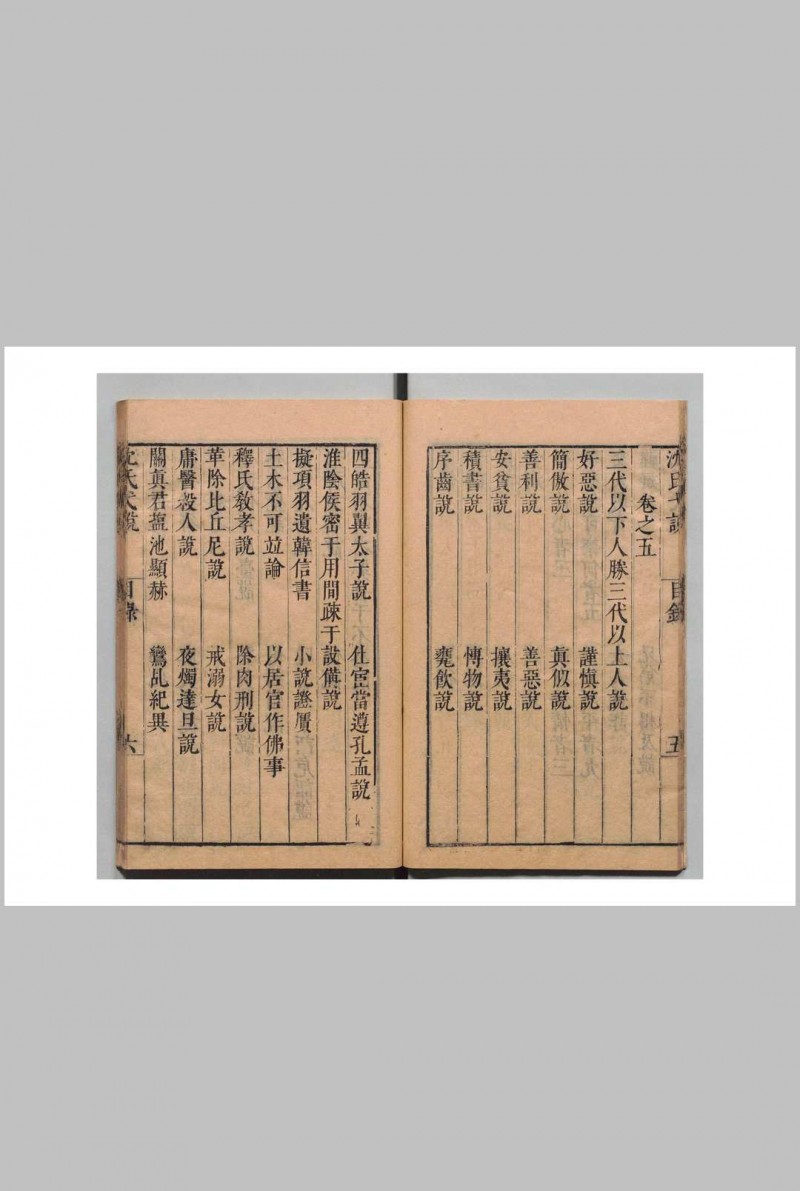 卷之五
三代以下人勝三代以上人說
好惡說 謹慎說
簡傲說 真似說
善利說 善惡說
安貧說 攘夷說
積書說 愽物說
序齒說 雍飲說
目錄 五
四皓羽翼太子說 仕宦當遵孔孟說
淮陰侯密于用間疎于設備說
擬項羽遺韓信書 小說證贋
土木不可竝論 以居官作佛事
釋氏敎孝說 除肉刑說
華除比丘尼說 戒溺女說
庸醫殺人說 夜燭達旦說
關真君盬池顯赫 鸞乩紀異
沈氏弋說 目錄 六